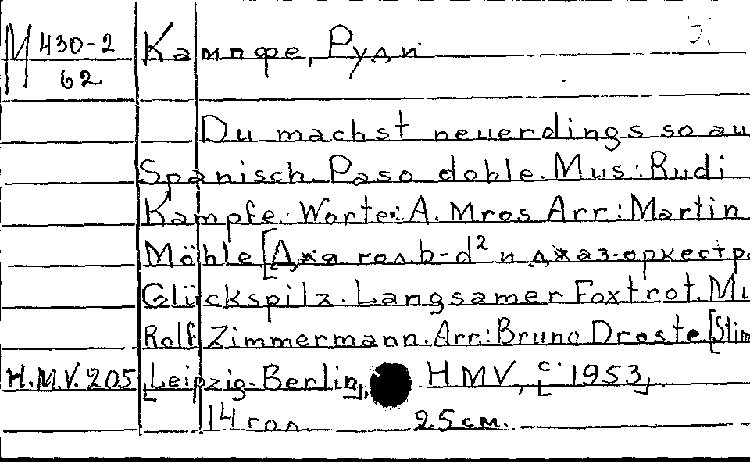 М 430-2
62
Кампфе, Руди
Du machst neuerdings so au
Spanisch. Paso doble. Mus: Rudi
Kampfe. Worte: A. Mros Arr: Martin
Möhle [Для гол b-d² и джаз-оркестр.
Glückspilz. Langsamer Foxtrot. Mu
Rolf Zimmermann. Arr: Bruno Droste [Stim
H.M.V. 205 [Leipzig-Berlin], HMV, [c. 1953]
14 гол 25 см.